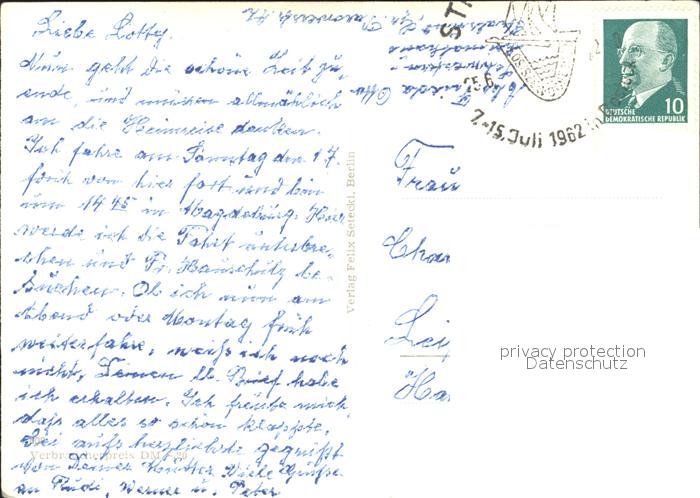 Liebe Lotty.
Nun geht die schöne Zeit zu
ende, und müssen allmählich
an die Heimreise denken.
Ich fahre am Sonntag den 1 7.
früh von hier fort und bin
um 14 45 in Magdeburg. Hier
werde ich die Fahrt unterbre-
chen und Fr. be-
suchen. Ob ich nun am
Abend oder Montag früh
weiterfahre, weiß ich noch
nicht, Deinen lb. Brief habe
ich erhalten. Ich freute mich
daß alles so schön klappte.
Sei aufs herzlichste gegrüßt
von Deiner Mutter Viele Grüße
an Rudi, Werner u. Peter
Verbraucherpreis DM -,20
Verlag Felix Setecki, Berlin
25.6.
7.-15. Juli 1962 in
DEUTSCHE
DEMOKRATISCHE REPUBLIK
10
Frau
Char
Leip
Ha
privacy protection
Datenschutz